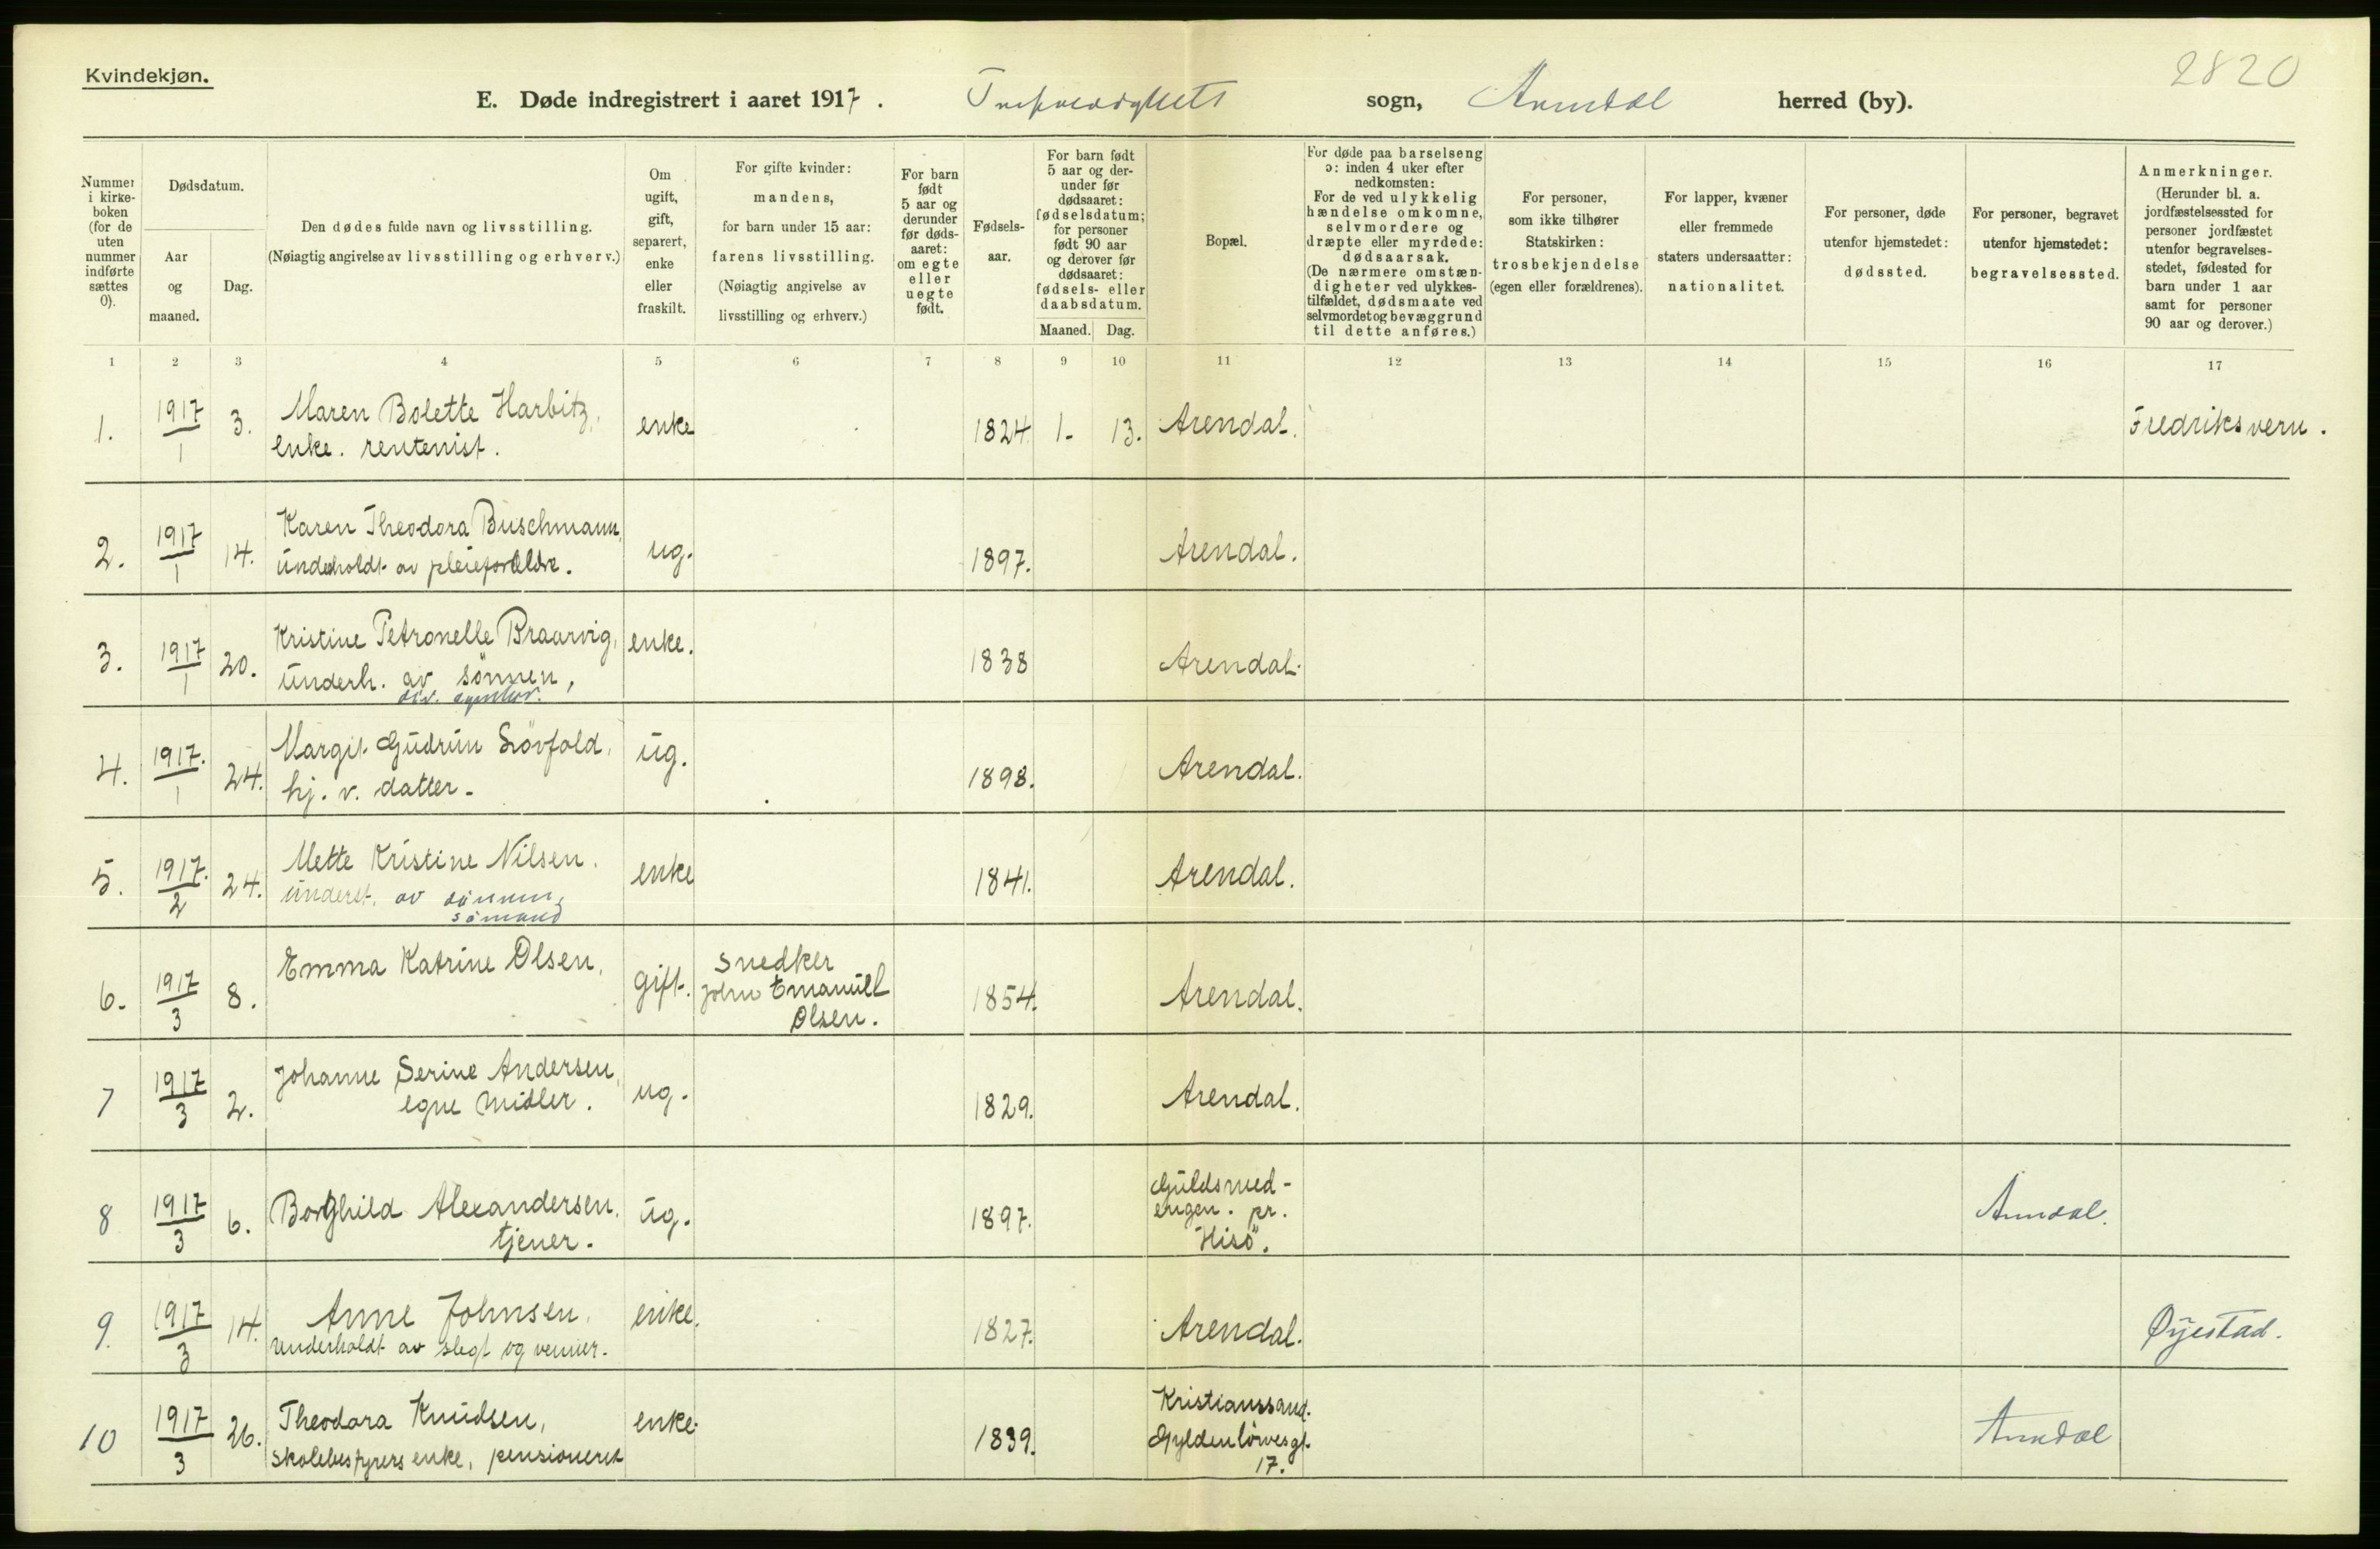 Kvindekjøn.
2820
E. Døde indregistrert i aaret 1917. Trefoldigheds sogn, Arendal herred (by).
Nummer i kirkeboken (for de uten nummer indførte sættes 0).
Dødsdatum.
Aar og maaned.
Dag.
Den dødes fulde navn og livsstilling.
(Nøiagtig angivelse av livsstilling og erhverv.)
Om ugift, gift, separert, enke eller fraskilt.
For gifte kvinder: mandens, for barn under 15 aar: farens livsstilling. (Nøiagtig angivelse av livsstilling og erhverv.)
For barn født 5 aar og derunder før dødsaaret: om egte eller uegte født.
Fødselsaar.
For barn født 5 aar og derunder før dødsaaret: fødselsdatum; for personer født 90 aar og derover før dødsaaret: fødsels- eller daabsdatum.
Maaned. Dag.
Bopæl.
For døde paa barselseng ɔ: inden 4 uker efter nedkomsten: For de ved ulykkelig hændelse omkomne, selvmordere og dræpte eller myrdede: dødsaarsak. (De nærmere omstændigheter ved ulykkestilfældet, dødsmaate ved selvmordet og bevæggrund til dette anføres.)
For personer, som ikke tilhører Statskirken: trosbekjendelse (egen eller forældrenes).
For lapper, kvæner eller fremmede staters undersaatter: nationalitet.
For personer, døde utenfor hjemstedet: dødssted.
For personer, begravet utenfor hjemstedet: begravelsessted.
Anmerkninger.
(Herunder bl. a. jordfæstelsessted for personer jordfæstet utenfor begravelsesstedet, fødested for barn under 1 aar samt for personer 90 aar og derover.)
1 2 3 4 5 6 7 8 9 10 11 12 13 14 15 16 17
1. 1917/1 3. Maren Bolette Harbitz, enke 1824 1. 13. Arendal. Fredriksvern.
enke. rentenist.
2. 1917/1 14. Karen Theodora Buschmann, ug. 1897. Arendal.
underholdt av pleieforældre.
3. 1917/1 20. Kristine Petronelle Braarvig, enke. 1838 Arendal.
underh. av sönnen,
div. agentur.
4. 1917./1 24. Margit Gudrun Sövfold, ug. 1898. Arendal.
hj. v. datter.
5. 1917./2 24. Mette Kristine Nilsen. enke 1841. Arendal.
underst. av sönnen,
sömand
6. 1917/3 8. Emma Katrine Olsen, gift. Snedker 1854. Arendal.
John Emanuel
Olsen.
7 1917/3 2. Johanne Serine Andersen, ug. 1829. Arendal.
egne midler.
8 1917/3 6. Borghild Alexandersen, ug. 1897. Guldsmed- Arendal.
tjener. engen. pr.
Hisö.
9. 1917/3 14. Anne Johnsen, enke. 1827. Arendal. Øyestad.
underholdt av slegt og venner.
10 1917/3 26. Theodora Knudsen, enke. 1839. Kristianssand. Arendal
skolebestyrers enke, pensioneret Gyldenlövesgt.
17.